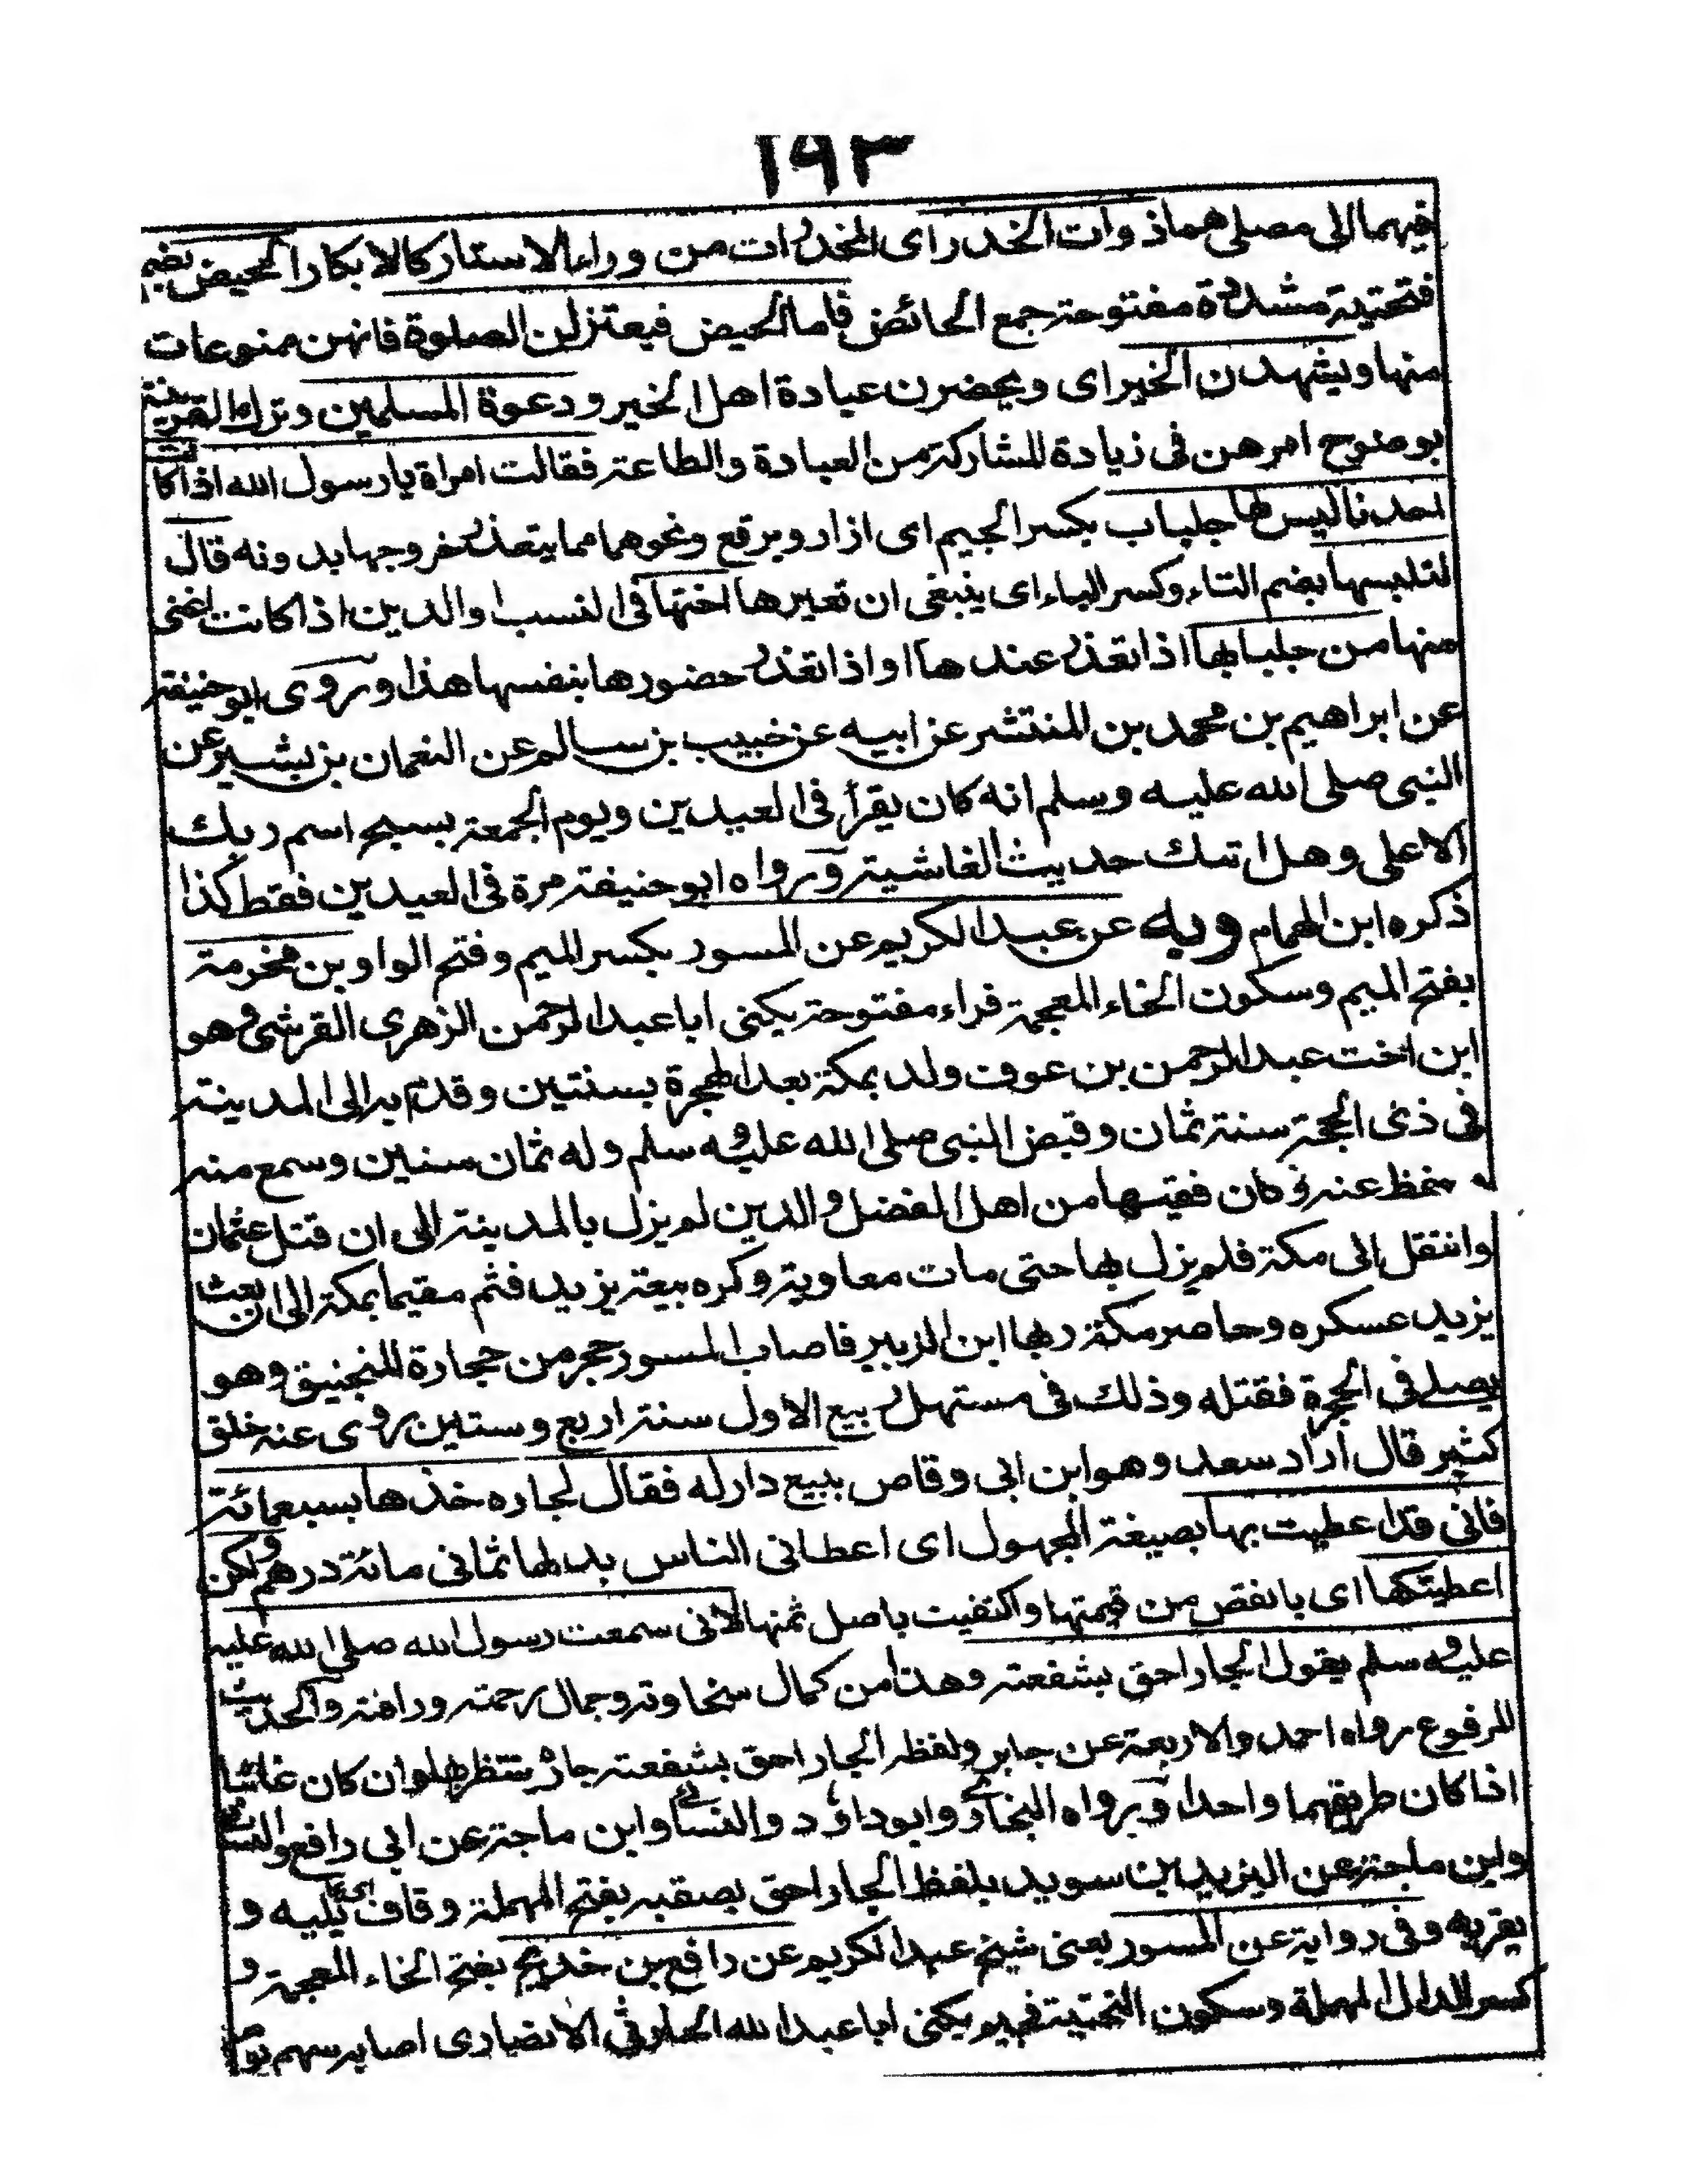 ١٩٣
فيهما الى مصلى هما ذوات الخدر اى المخدرات من وراء الاستار كالابكار الحيض بضم
فتحتية مشددة مفتوحة جمع الحائض فاما الحيض فيعتزلن الصلوة فانهن ممنوعات
منها ويشهدن الخير اى ويحضرن عبادة اهل الخير ودعوة المسلمين وترك القرينة
بوضوح امرهن فى زيادة المشاركة من العبادة والطاعة فقالت امراة يا رسول الله اذا كانت
احدنا ليس لها جلباب بكسر الجيم اى ازار وبرقع ونحوهما مما يتعذر خروجها بدونه قال
لتلبسها بضم التاء وكسر الباء اى ينبغى ان تعيرها اختها فى النسب او الدين اذا كانت اغنى
منها من جلبابها اذا تعذر عندها او اذا تعذر حضورها بنفسها هذا وروى ابو حنيفة
عن ابراهيم بن محمد بن المنتشر عن ابيه عن خبيب بن سالم عن النعمان بن بشير عن
النبى صلى الله عليه وسلم انه كان يقرأ فى العيدين ويوم الجمعة بسبح اسم ربك
الاعلى وهل اتىك حديث الغاشية ورواه ابو حنيفة مرة فى العيدين فقط كذا
ذكره ابن الهمام وبه عن عبد الكريم عن المسور بكسر الميم وفتح الواو بن مخرمة
بفتح الميم وسكون الخاء المعجمة فراء مفتوحة يكنى ابا عبد الرحمن الزهرى القرشى وهو
ابن اخت عبد الرحمن بن عوف ولد بمكة بعد الهجرة بسنتين وقدم به الى المدينة
فى ذى الحجة سنة ثمان وقبض النبى صلى الله عليه وسلم وله ثمان سنين وسمع منه
حفظ عنه وكان فقيها من اهل الفضل والدين لم يزل بالمدينة الى ان قتل عثمان
وانتقل الى مكة فلم يزل بها حتى مات معاوية وكره بيعة يزيد فثم مقيما بمكة الى ان بعث
يزيد عسكره وحاصر مكة وبها ابن الزبير فاصاب المسور حجر من حجارة المنجنيق وهو
يصلى فى الحجرة فقتله وذلك فى مستهل ربيع الاول سنة اربع وستين روى عنه خلق
كثير قال اراد سعد وهو ابن ابى وقاص ببيع دار له فقال لجاره خذها بسبعمائة
فانى قد اعطيت بها بصيغة المجهول اى اعطانى الناس بدلها ثمانى مائة درهم ولكن
اعطيتكها اى بانقص من قيمتها واكتفيت باصل ثمنها لانى سمعت رسول الله صلى الله عليه
عليه وسلم يقول الجار احق بشفعته وهذا من كمال سخاوته وجمال رحمته ورافته والحديث
المرفوع رواه احمد والاربعة عن جابر ولفظه الجار احق بشفعته جاره ينتظر بها وان كان غائبا
اذا كان طريقهما واحدا ورواه البخارى وابوداؤد والنسائى وابن ماجة عن ابى رافع والنسائى
وابن ماجة عن اليزيد بن سويد بلفظ الجار احق بصقبه بفتح المهملة وقاف اى بما يليه و
يقربه وفى رواية عن المسور يعنى شيخ عبد الكريم عن رافع بن خديج بفتح الخاء المعجمة و
كسر الدال المهملة وسكون التحتية فجيم يكنى ابا عبد الله الحارثى الانصارى اصابه سهم يوم